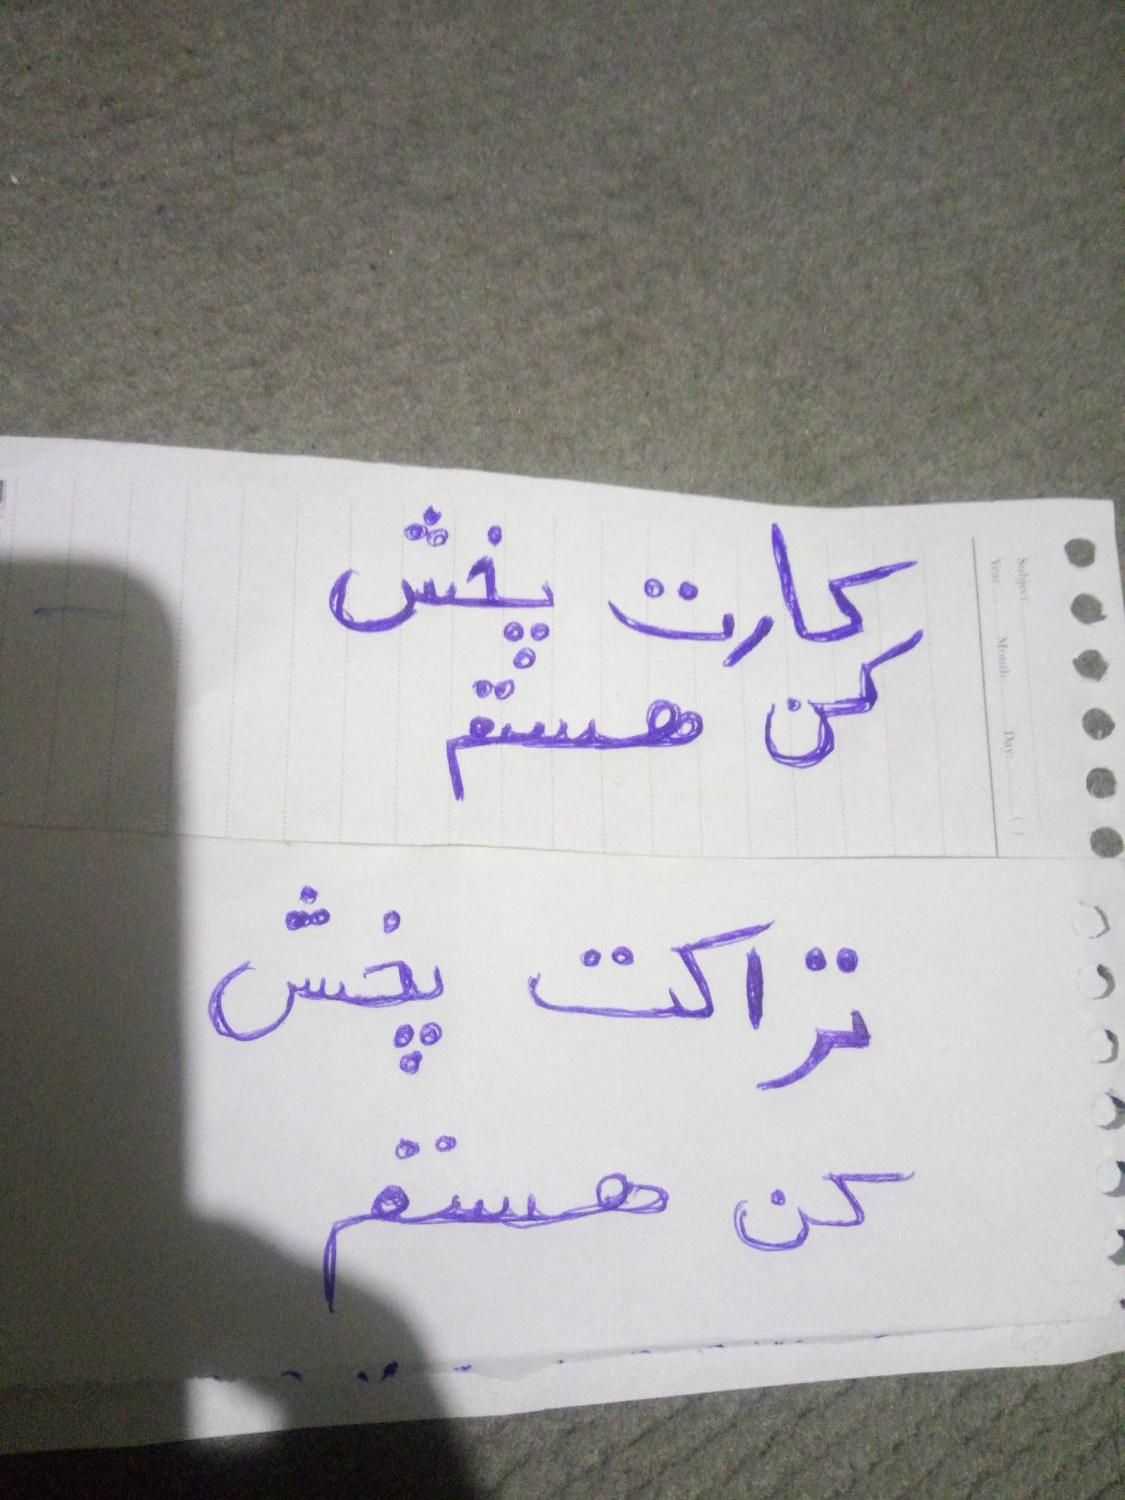 کارت پخش
کن هستم
تراکت پخش
کن هستم
Subject:
Year: Month: Day: ( )